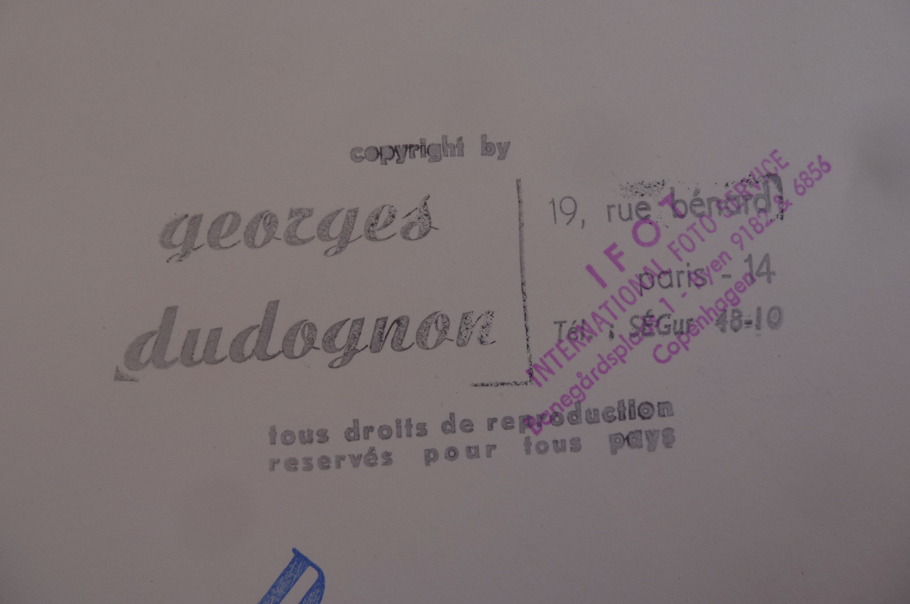 copyright by
georges
dudognon
19, rue bénard
paris - 14
Tél. : SÉGur 48-10
tous droits de reproduction
reservés pour tous pays
IFOT
INTERNATIONAL FOTO SERVICE
Banegårdsplads 1 - Byen 9182 & 6856
Copenhagen